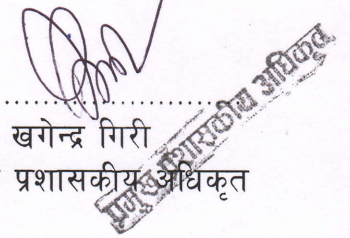 खगेन्द्र गिरी
प्रशासकीय अधिकृत
प्रमुख प्रशासकीय अधिकृत